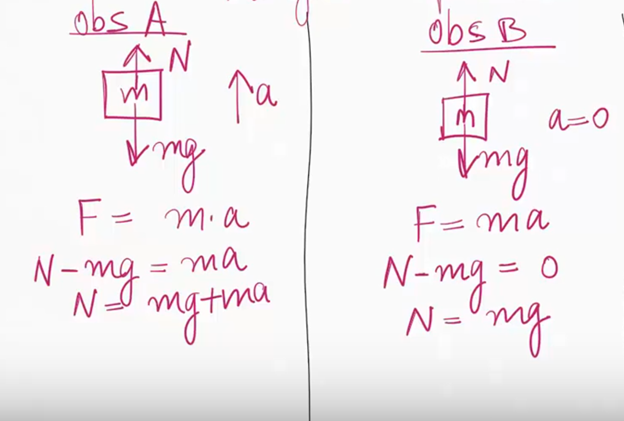 obs A
N
m
a
mg
F = m·a
N-mg = ma
N = mg+ma
obs B
N
m
a=0
mg
F = ma
N-mg = 0
N = mg